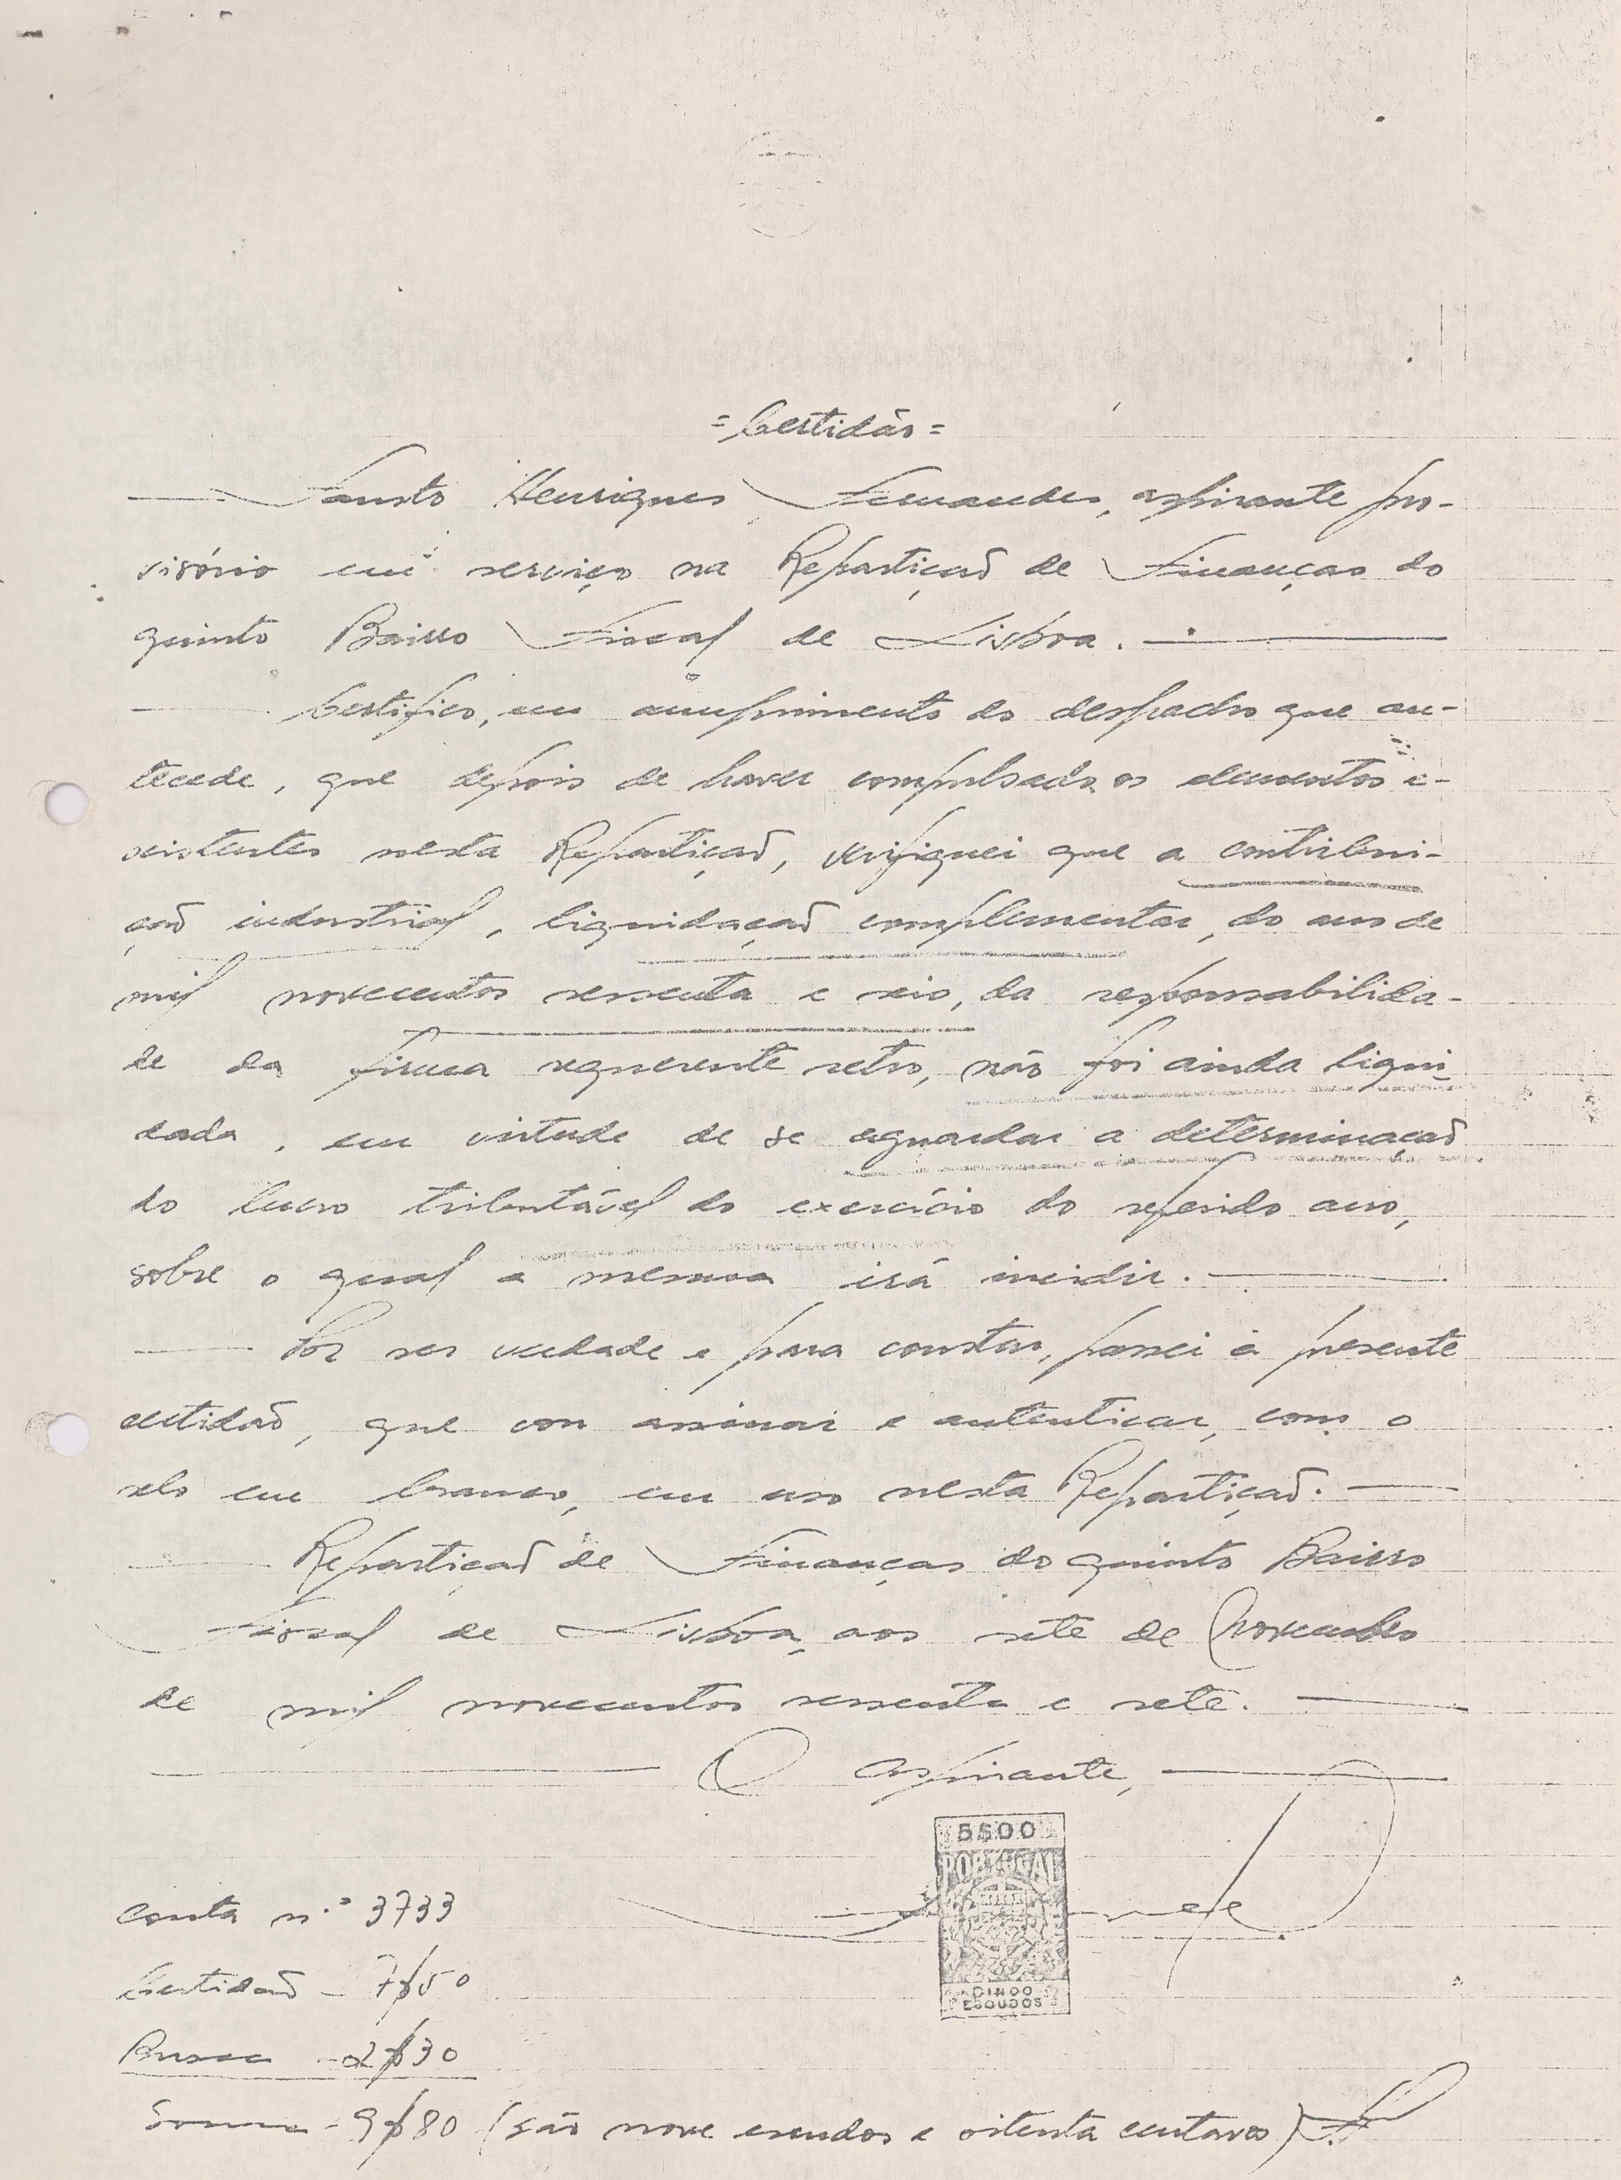 = Certidão =
Fausto Henriques Fernandes, aspirante pro-
visório em serviço na Repartição de Finanças do
quinto Bairro Fiscal de Lisboa.
Certifico, em cumprimento do despacho que an-
tecede, que depois de haver compulsado os elementos e-
xistentes nesta Repartição, verifiquei que a contribui-
ção industrial, liquidação complementar, do ano de
mil novecentos sessenta e seis, da responsabilida-
de da firma requerente retro, não foi ainda liqui-
dada, em virtude de se aguardar a determinação
do lucro tributável do exercício do referido ano,
sobre o qual a mesma irá incidir.
Por ser verdade e para constar, passei a presente
certidão, que vou assinar e autenticar, com o
selo em branco, em uso nesta Repartição.
Repartição de Finanças do quinto Bairro
Fiscal de Lisboa, aos sete de Novembro
de mil novecentos sessenta e sete.
O aspirante,
5$00
PORTUGAL
CINCO
ESCUDOS
Conta n.º 3733
Certidão - 7$50
Busca - 2$30
Soma - 9$80 (são nove escudos e oitenta centavos)